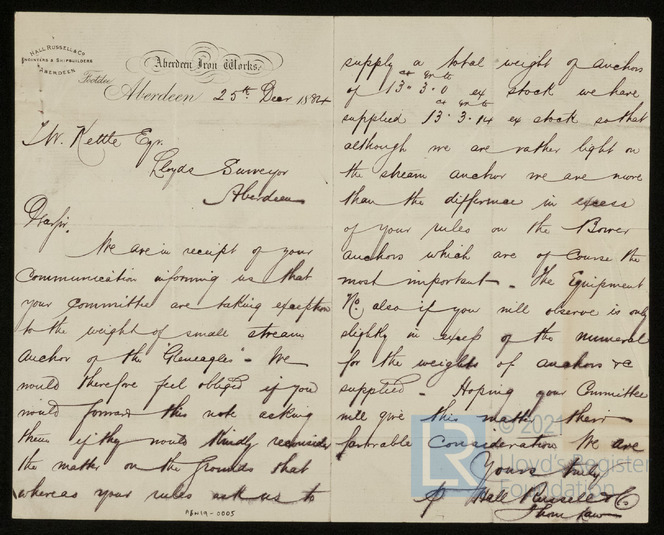 HALL RUSSELL & CO
ENGINEERS & SHIPBUILDERS
ABERDEEN
Aberdeen Iron Works.
Footdee
Aberdeen 25th Decr 1884
W. Kettle Eqr.
Lloyds Surveyor
Aberdeen
Dear Sir,
We are in receipt of your
communication informing us that
your Committee are taking exception
to the weight of small stream
anchor of the "Gleneagles" - We
would therefore feel obliged if you
would forward this note asking
them if they would kindly reconsider
the matter on the grounds that
whereas your rules ask us to
ABN19-0005
supply a total weight of anchors
of 13 cwt 3 qr 0 ex stock we have
supplied 13 . 3 . 14 ex stock so that
although we are rather light on
the stream anchor we are more
than the difference in excess
of your rules on the Bower
anchors which are of course the
most important - The Equipment
No. also if you will observe is only
slightly in excess of the numeral
for the weights of anchors &c
supplied - Hoping your Committee
will give this matter their
favorable consideration We are
Yours truly
p Hall Russell & Co
© 2021
Lloyd's Register
Foundation
LR